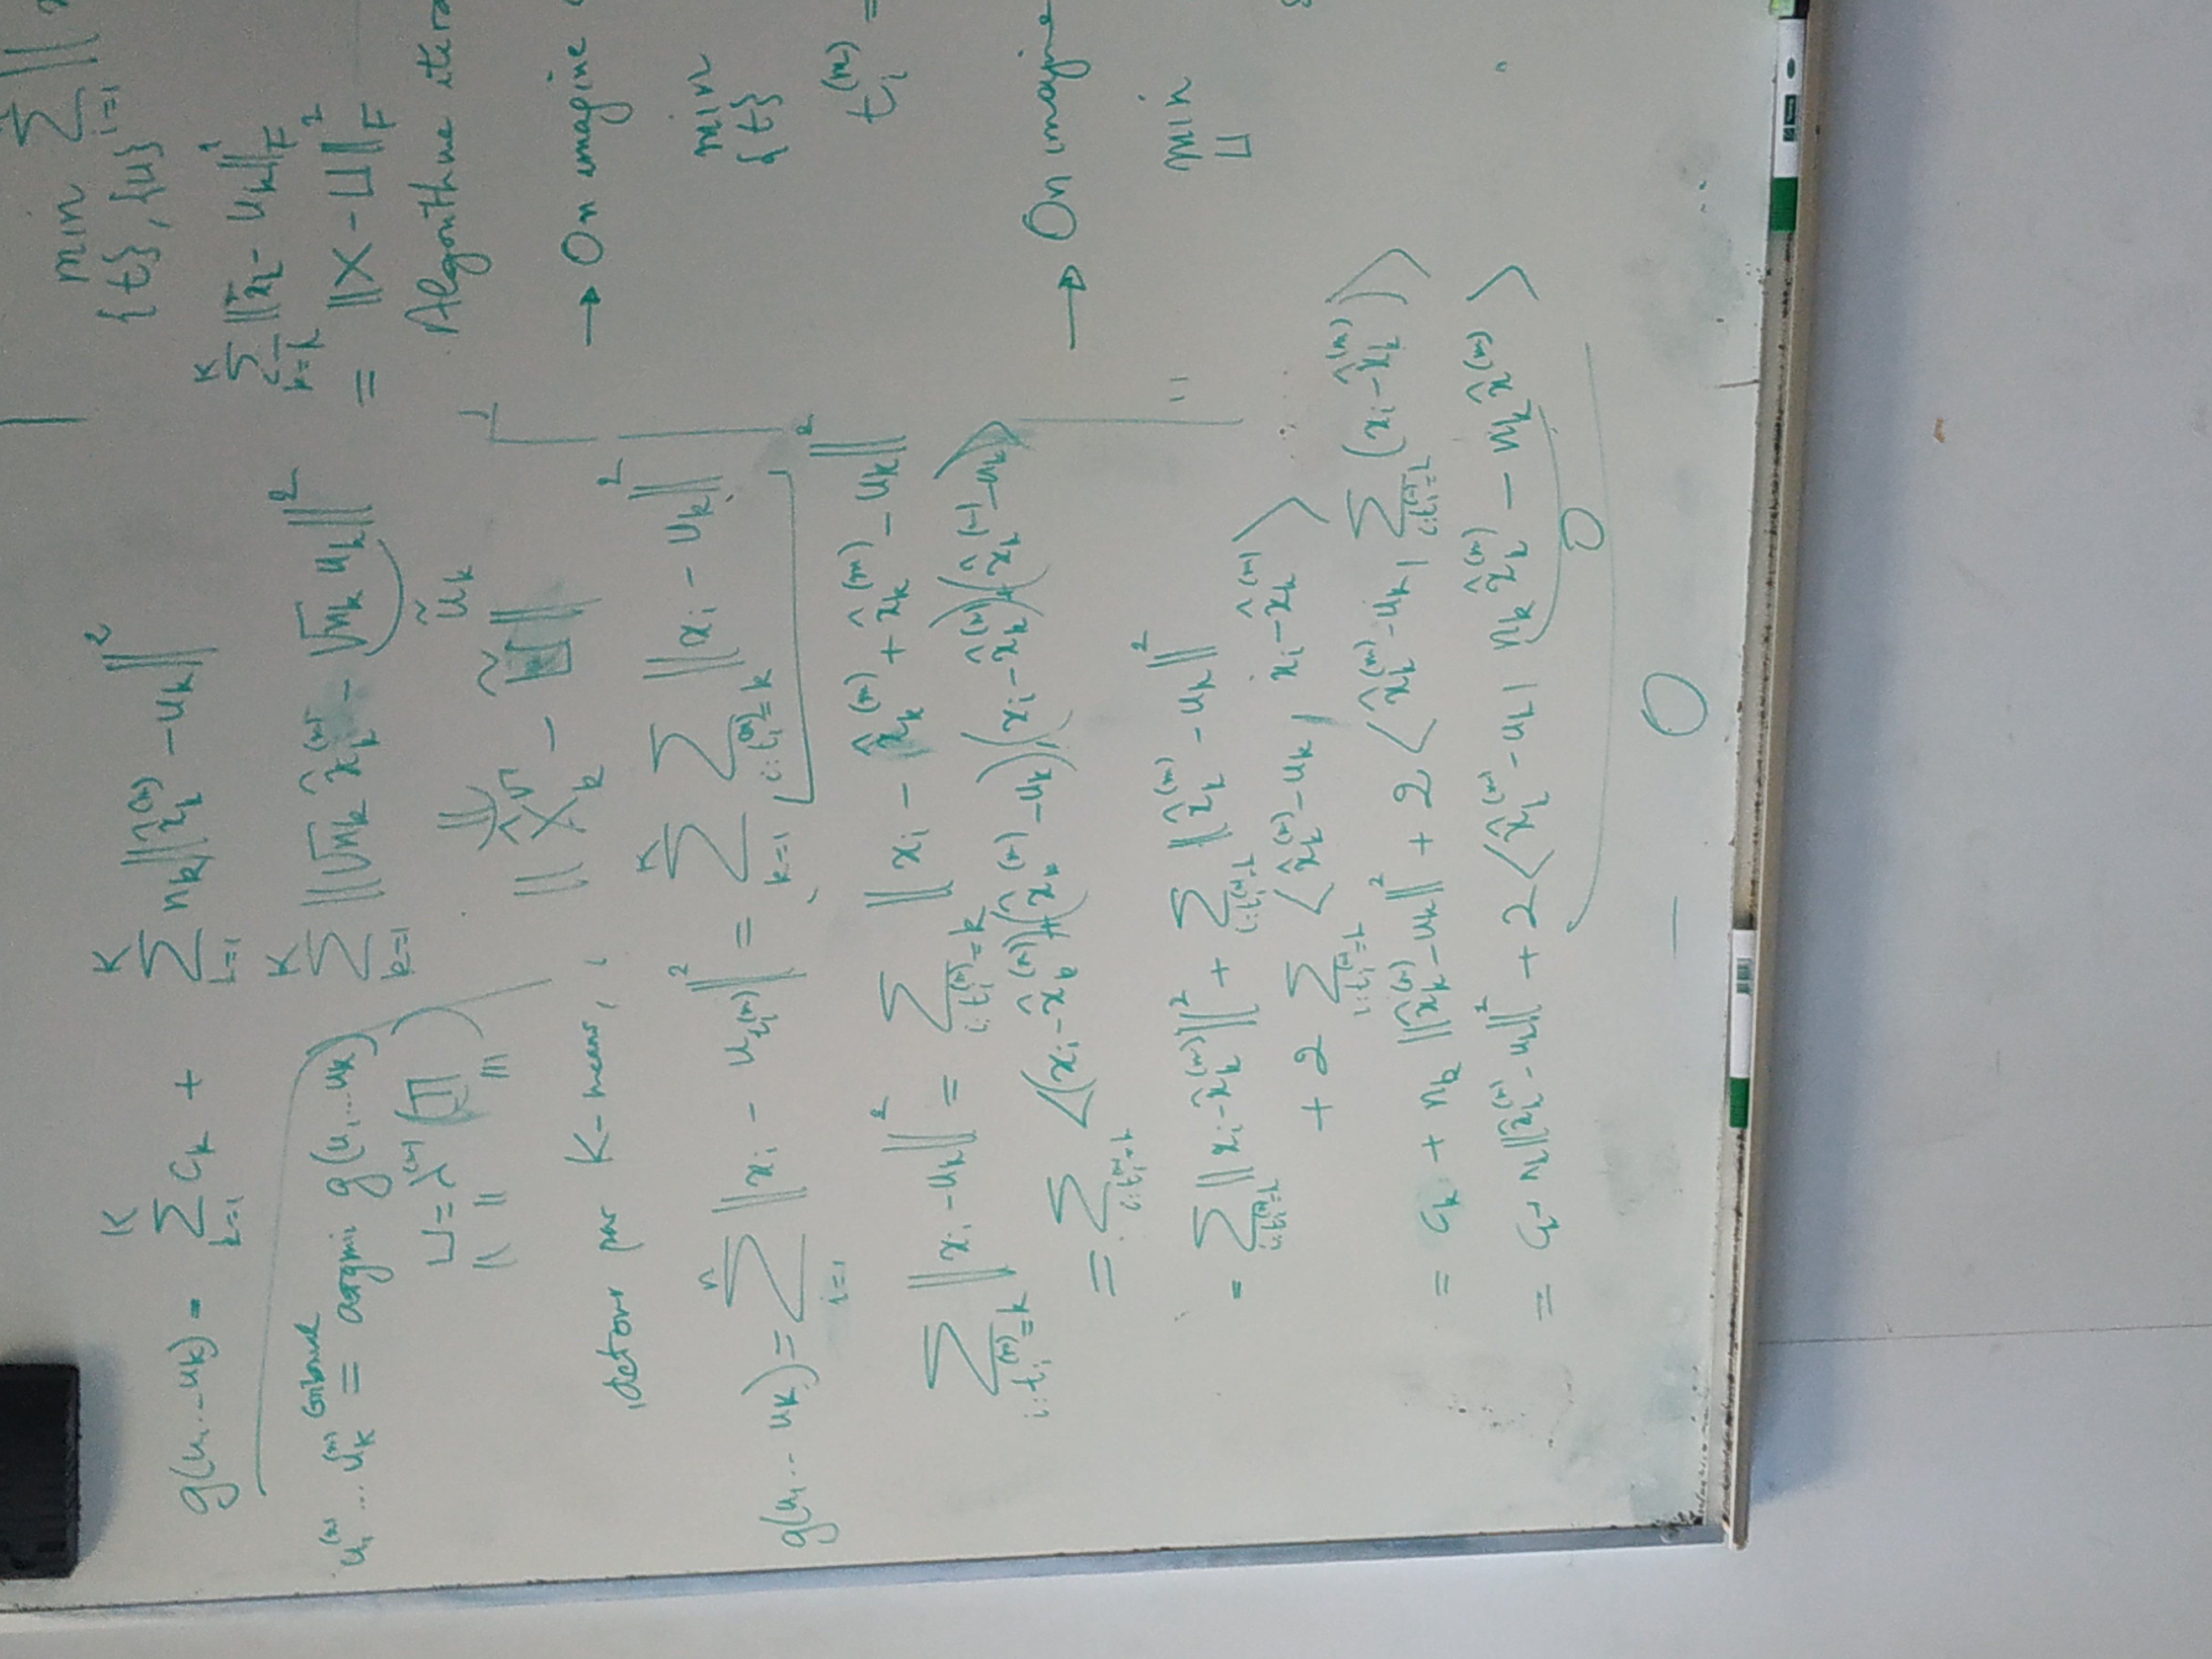 g(u₁...u_K) = Σ_{k=1}^{K} c_k + Σ_{k=1}^{K} n_k ||x̂_k^{(m)} - u_k||²
u₁^{(m)} ... u_K^{(m)} = argmin g(u₁...u_K)
Σ_{k=1}^{K} ||√n_k x̂_k^{(m)} - √n_k u_k||²
ũ_k
U = λ^{(m)} (Π )
|| X̂_k^√ - Ũ ||
detour par K-means,
g(u₁...u_K) = Σ_{i=1}^{n} ||x_i - u_{t_i^{(m)}}||² = Σ_{k=1}^{K} Σ_{i:t_i^{(m)}=k} ||x_i - u_k||²
Σ_{i:t_i^{(m)}=k} ||x_i - u_k||² = Σ_{i:t_i^{(m)}=k} ||x_i - x̂_k^{(m)} + x̂_k^{(m)} - u_k||²
= Σ_{i:t_i^{(m)}=k} <(x_i - x̂_k^{(m)}) + (x̂_k^{(m)} - u_k), (x_i - x̂_k^{(m)}) + (x̂_k^{(m)} - u_k)>
= Σ_{i:t_i^{(m)}=k} ||x_i - x̂_k^{(m)}||² + Σ_{i:t_i^{(m)}=k} ||x̂_k^{(m)} - u_k||²
+ 2 Σ_{i:t_i^{(m)}=k} <x̂_k^{(m)} - u_k, x_i - x̂_k^{(m)}>
= c_k + n_k ||x̂_k^{(m)} - u_k||² + 2 <x̂_k^{(m)} - u_k, Σ_{i:t_i^{(m)}=k} (x_i - x̂_k^{(m)})>
= c_k + n_k ||x̂_k^{(m)} - u_k||² + 2 <x̂_k^{(m)} - u_k, n_k x̂_k^{(m)} - n_k x̂^{(m)}>
0
0
min Σ_{i=1} ||
{t}, {u}
Σ_{k=1}^{K} ||x̄_k - u_k||_F²
= ||X - U||_F²
Algorithme
→ On imagine
min
{t}
t_i^{(m)} =
→ On imagine
min
U